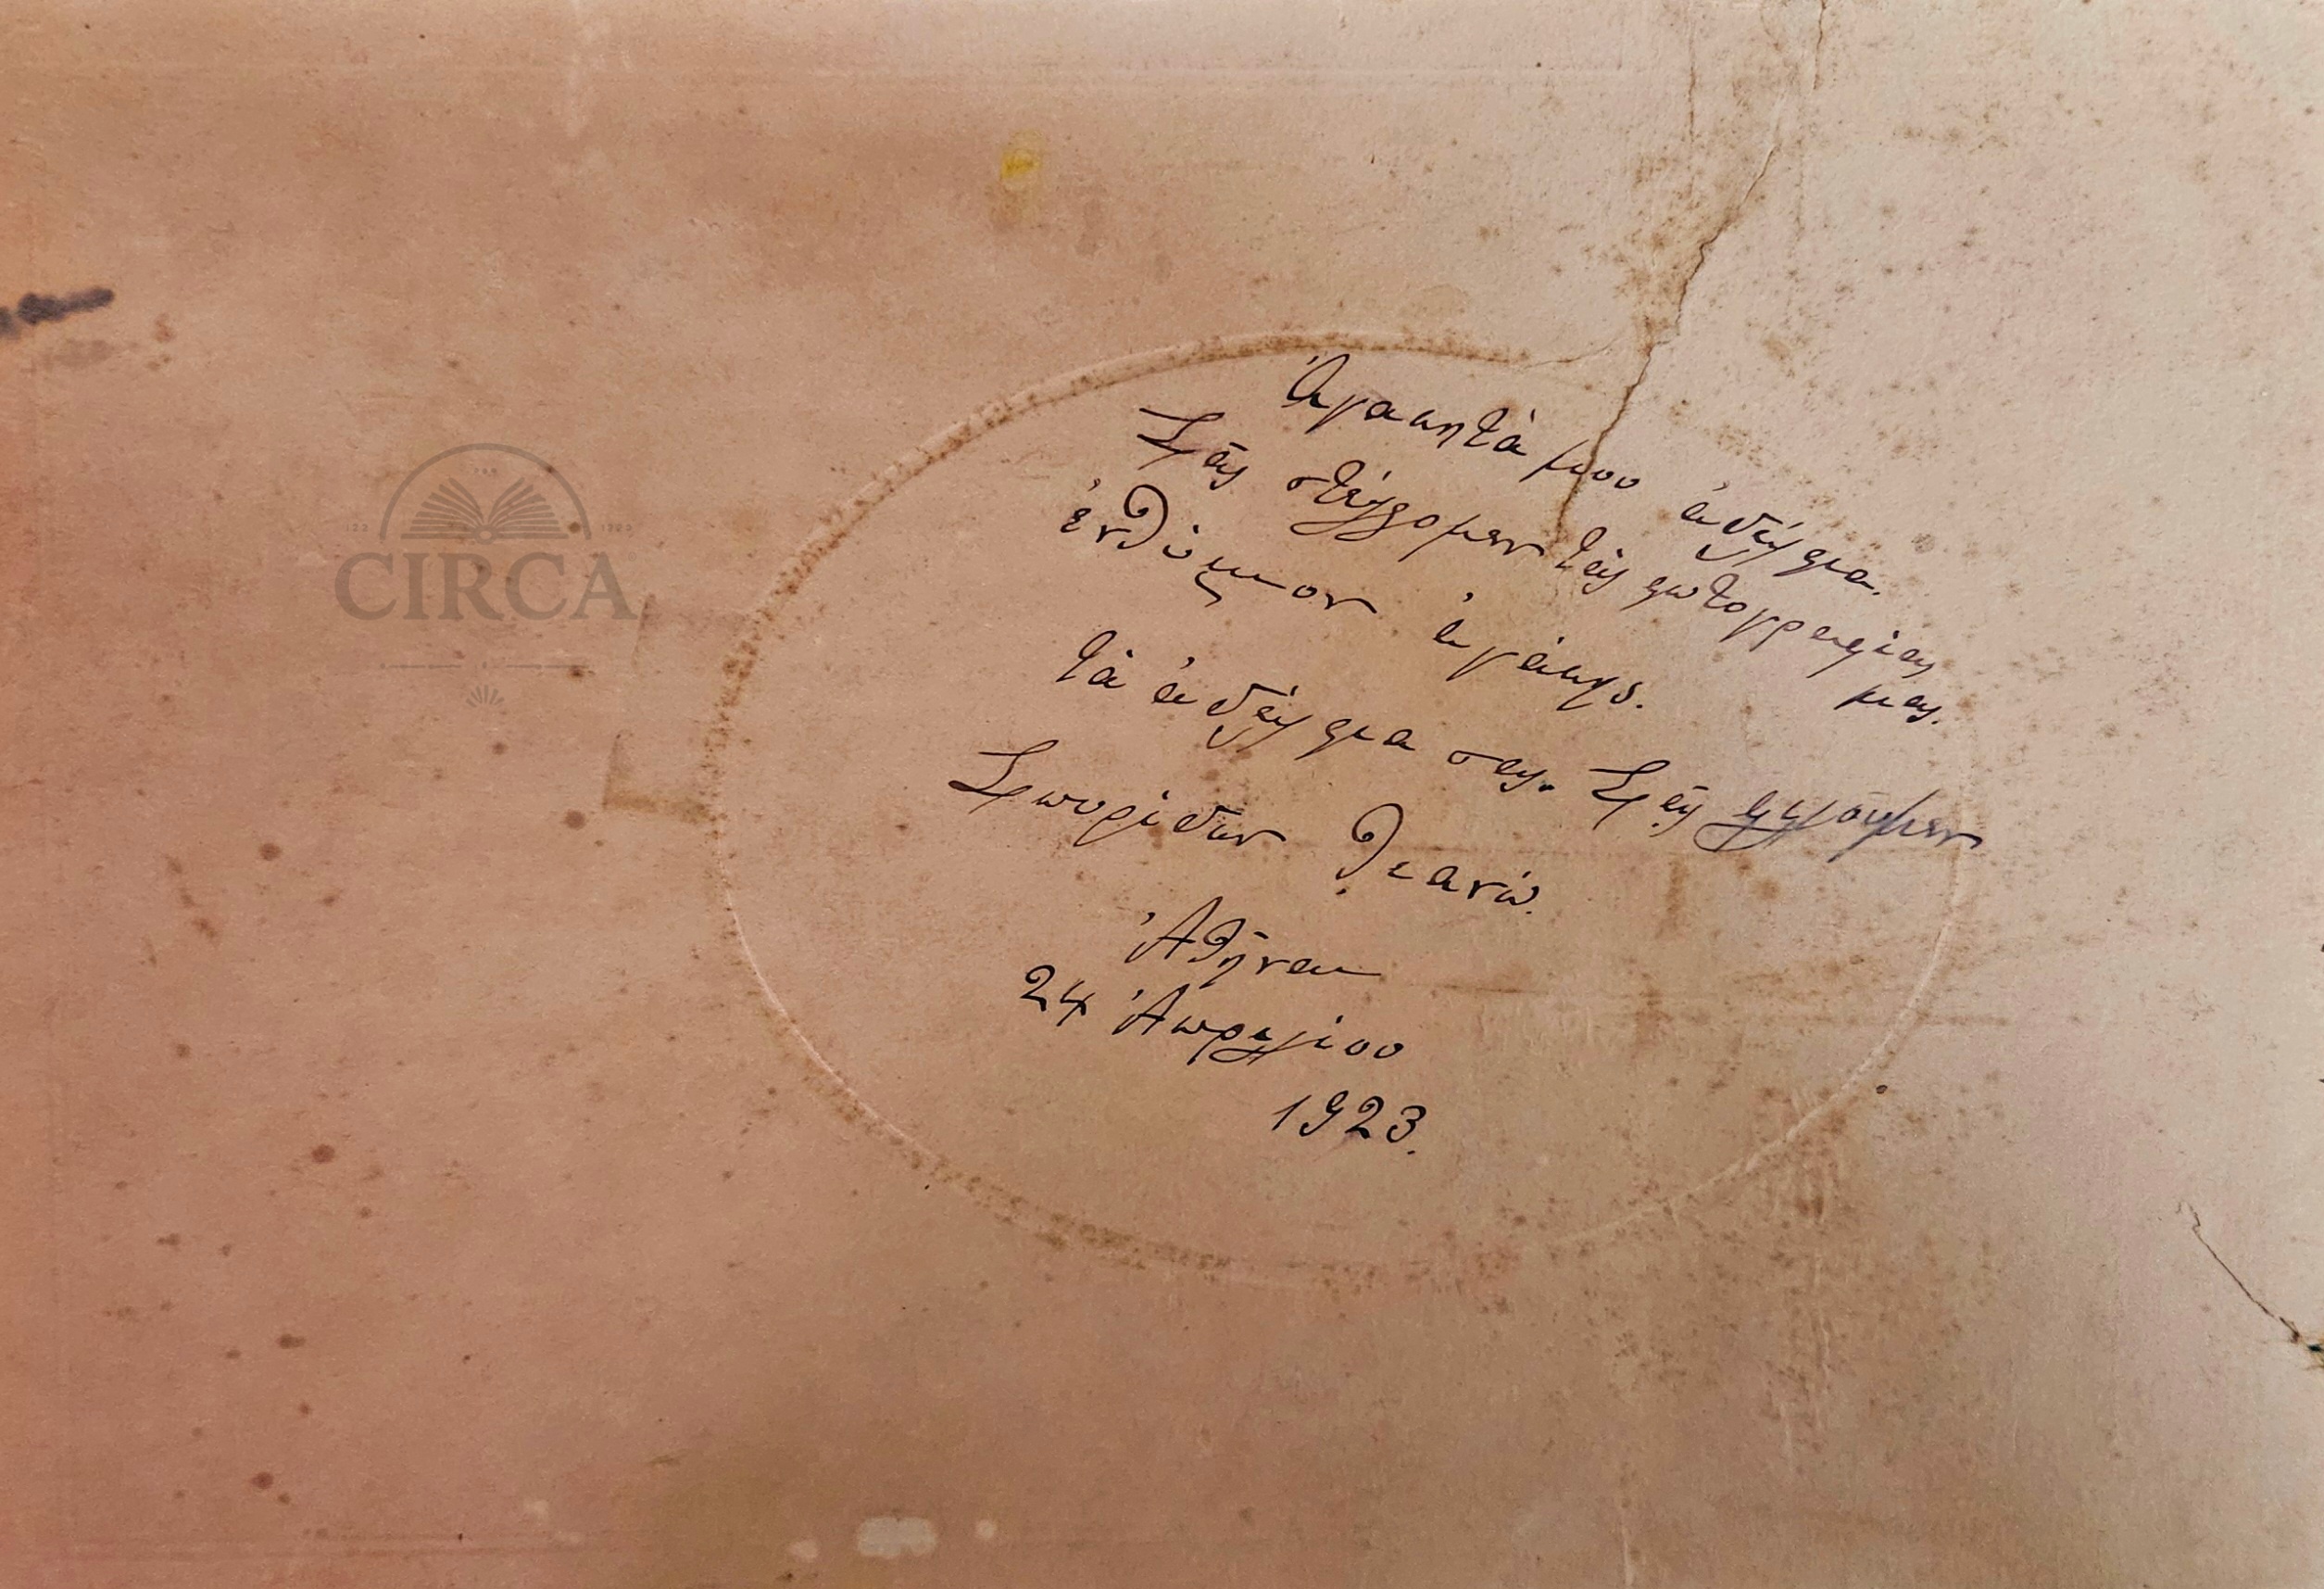 CIRCA
Ἀγαπητά μου ἀδέλφια.
Σᾶς στέλλομεν τὰς φωτογραφίας μας.
ἐνθύμιον ἀγάπης.
τὰ ἀδέλφια σας. Σᾶς φιλοῦμεν
Σπυρίδων Θεανώ.
Ἀθῆναι
24 Ἀπριλίου
1923.